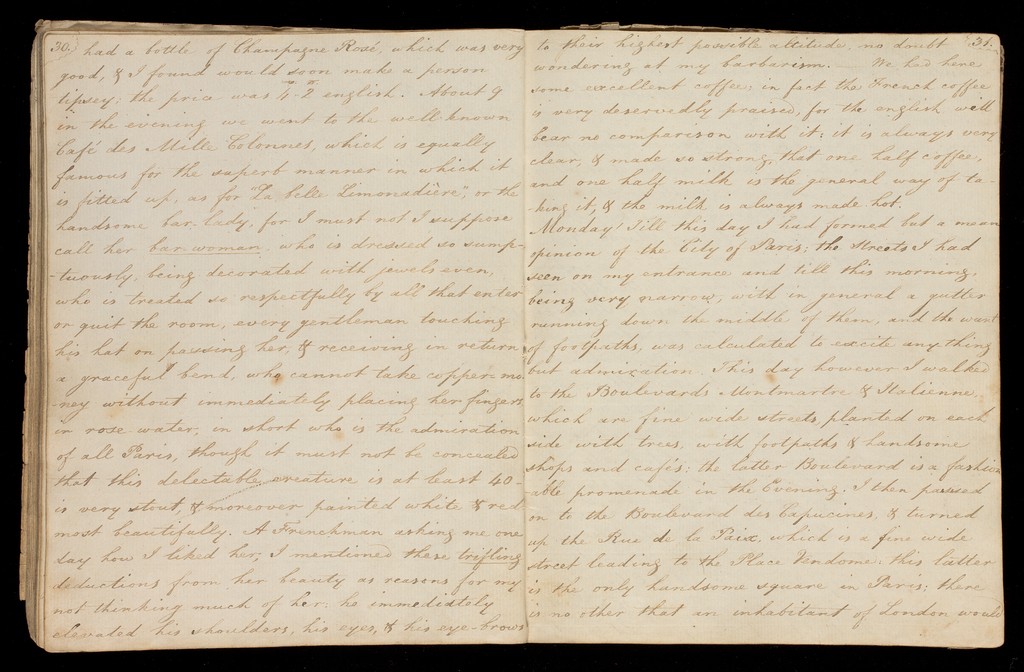 30.
had a bottle of Champagne Rosé, which was very
good, & I found would soon make a person
tipsey; the price was 4s-2d english. About 9
in the evening we went to the well-known
Café des Mille Colonnes, which is equally
famous for the superb manner in which it
is fitted up, as for "La belle Limonadière", or the
handsome bar-lady, for I must not I suppose
call her bar-woman, who is dressed so sump-
-tuously, being decorated with jewels even,
who is treated so respectfully by all that enter
or quit the room, every gentleman touching
his hat on passing her, & receiving in return
a graceful bend, who cannot take copper-mo-
-ney without immediately placing her fingers
in rose water, in short who is the admiration
of all Paris, though it must not be concealed
that this delectable creature is at least 40-
is very stout, & moreover painted white & red
most beautifully. A Frenchman asking me one
day how I liked her, I mentioned these trifling
deductions from her beauty as reasons for my
not thinking much of her; he immediately
elevated his shoulders, his eyes, & his eye-brows
31.
to their highest possible altitude, no doubt
wondering at my barbarism. We had here
some excellent coffee; in fact the French coffee
is very deservedly praised, for the english will
bear no comparison with it; it is always very
clear, & made so strong, that one half coffee,
and one half milk is the general way of ta-
-king it, & the milk is always made hot.
Monday. Till this day I had formed but a mean
opinion of the City of Paris; the Streets I had
seen on my entrance and till this morning,
being very narrow, with in general a gutter
running down the middle of them, and the want
of footpaths, was calculated to excite anything
but admiration. This day however I walked
to the Boulevards Montmartre & Italienne,
which are fine wide streets planted on each
side with trees, with footpaths & handsome
shops and cafés; the latter Boulevard is a fashion-
able promenade in the Evening. I then passed
on to the Boulevard des Capucines, & turned
up the Rue de la Paix, which is a fine wide
street leading to the Place Vendome; this latter
is the only handsome square in Paris; there
is no other that an inhabitant of London would